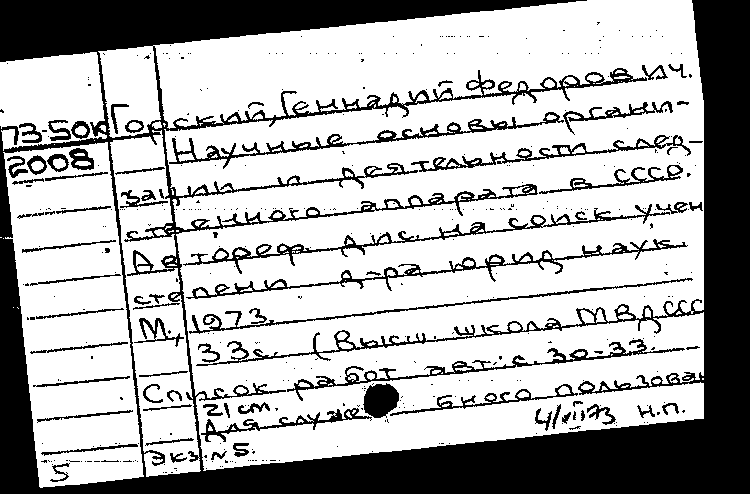 Горский, Геннадий Федорович.
73-50к
2008
Научные основы органи-
зации и деятельности след-
ственного аппарата в СССР.
Автореф. дис. на соиск. учен
степени д-ра юрид. наук.
М., 1973.
33 с. (Высш. школа МВД ССС
Список работ авт.: с. 30-33.
21 см.
Для служебного пользован
4/VII 73 Н.П.
Экз. N 5.
5